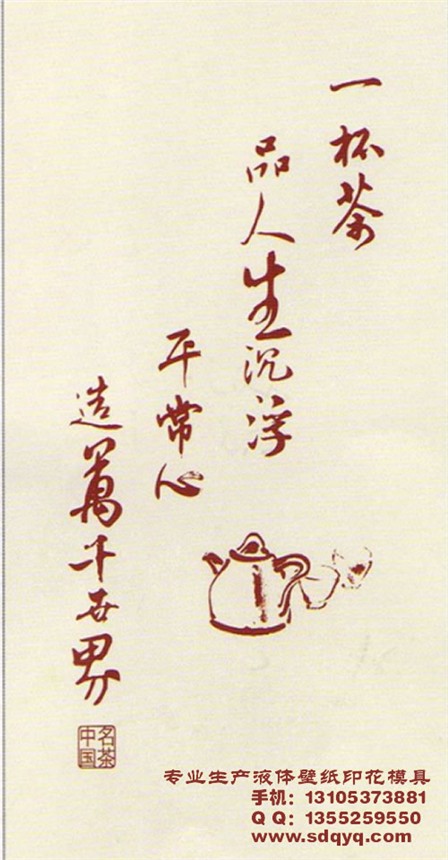 一杯茶
品人生沉浮
平常心
造萬千世界
名茶
中国
专业生产液体壁纸印花模具
手机：13105373881
QQ：1355259550
www.sdqyq.com